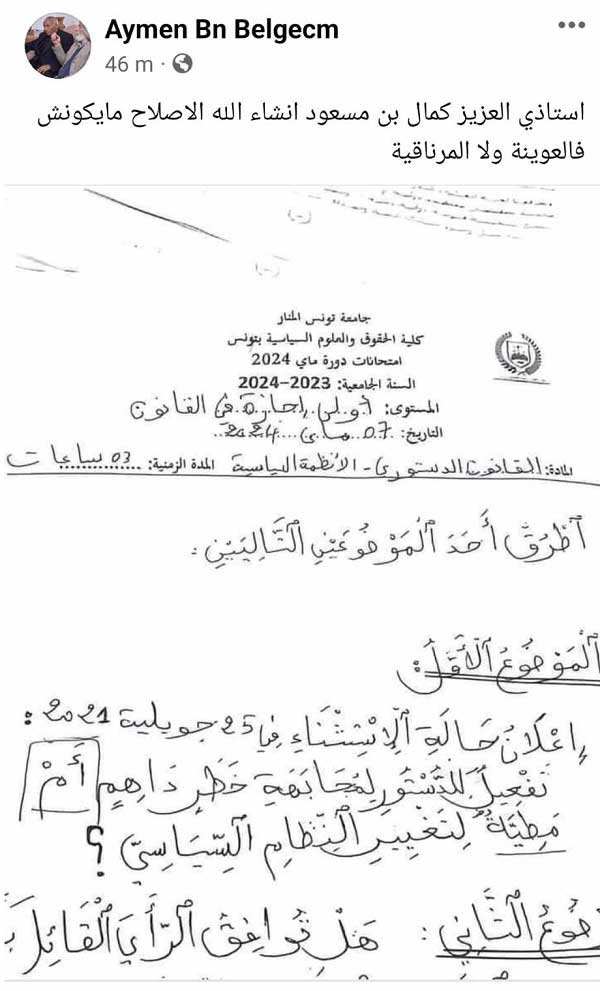 Aymen Bn Belgecm
46 m
استاذي العزيز كمال بن مسعود انشاء الله الاصلاح مايكونش
فالعوينة ولا المرناقية
جامعة تونس المنار
كلية الحقوق والعلوم السياسية بتونس
امتحانات دورة ماي 2024
السنة الجامعية: 2023-2024
المستوى: أولى إجازة في القانون
التاريخ: 07 ماي 2024
المادة: القانون الدستوري - الأنظمة السياسية المدة الزمنية: 03 ساعات
أُطْرُقْ أَحَدَ ٱلْمَوْضُوعَيْنِ ٱلتَّالِيَيْنِ:
ٱلْمَوْضُوعُ ٱلْأَوَّلُ:
إِعْلَانُ حَالَةِ ٱلْإِسْتِثْنَاءِ فِي 25 جويلية 2021:
تَفْعِيلٌ لِلدُّسْتُورِ لِمُجَابَهَةِ خَطَرٍ دَاهِمٍ أَمْ
مَطِيَّةٌ لِتَغْيِيرِ ٱلنِّظَامِ ٱلسِّيَاسِيِّ ؟
ٱلثَّانِي: هَلْ تُوَافِقُ ٱلرَّأْيَ ٱلْقَائِلَ